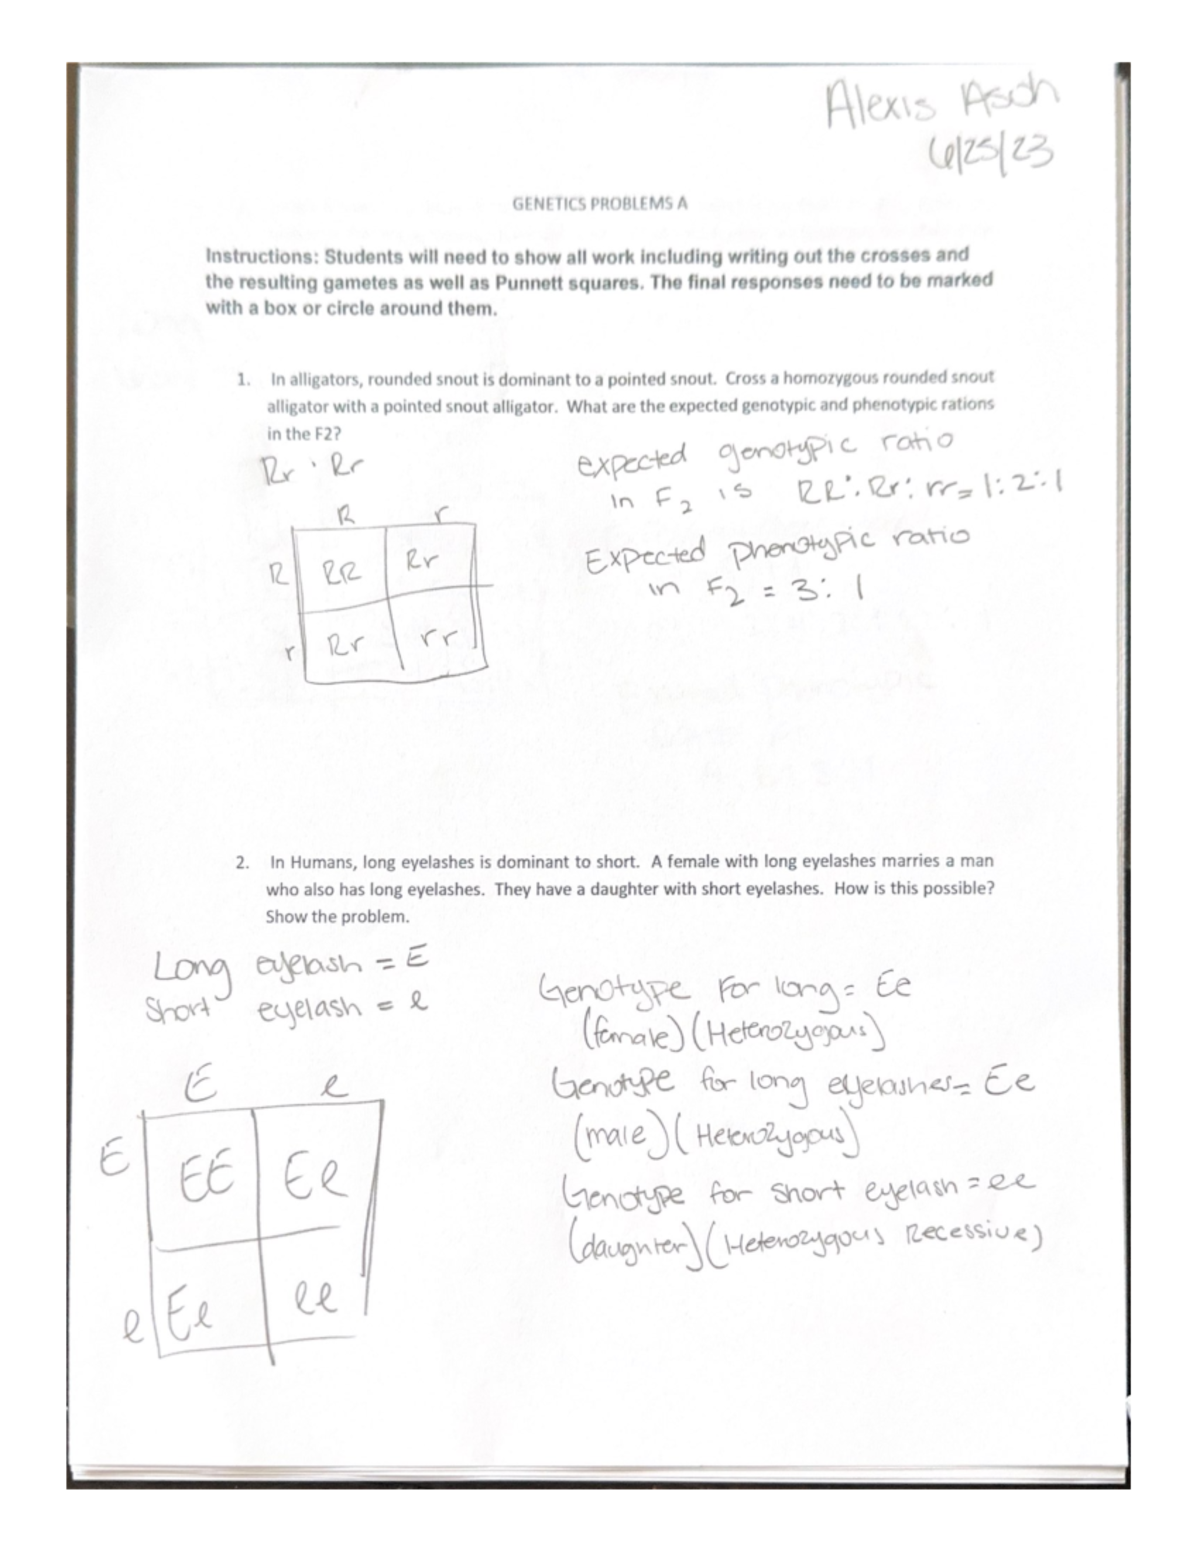 Alexis Asch
6/25/23
GENETICS PROBLEMS A
Instructions: Students will need to show all work including writing out the crosses and
the resulting gametes as well as Punnett squares. The final responses need to be marked
with a box or circle around them.
1. In alligators, rounded snout is dominant to a pointed snout. Cross a homozygous rounded snout
alligator with a pointed snout alligator. What are the expected genotypic and phenotypic rations
in the F2?
Rr · Rr
R r
R RR Rr
r Rr rr
expected genotypic ratio
in F2 is RR:Rr:rr=1:2:1
Expected phenotypic ratio
in F2 = 3:1
2. In Humans, long eyelashes is dominant to short. A female with long eyelashes marries a man
who also has long eyelashes. They have a daughter with short eyelashes. How is this possible?
Show the problem.
Long eyelash = E
Short eyelash = e
E e
E EE Ee
e Ee ee
Genotype For long= Ee
(female)(Heterozygous)
Genotype for long eyelashes= Ee
(male)(Heterozygous)
Genotype for short eyelash=ee
(daughter)(Heterozygous Recessive)